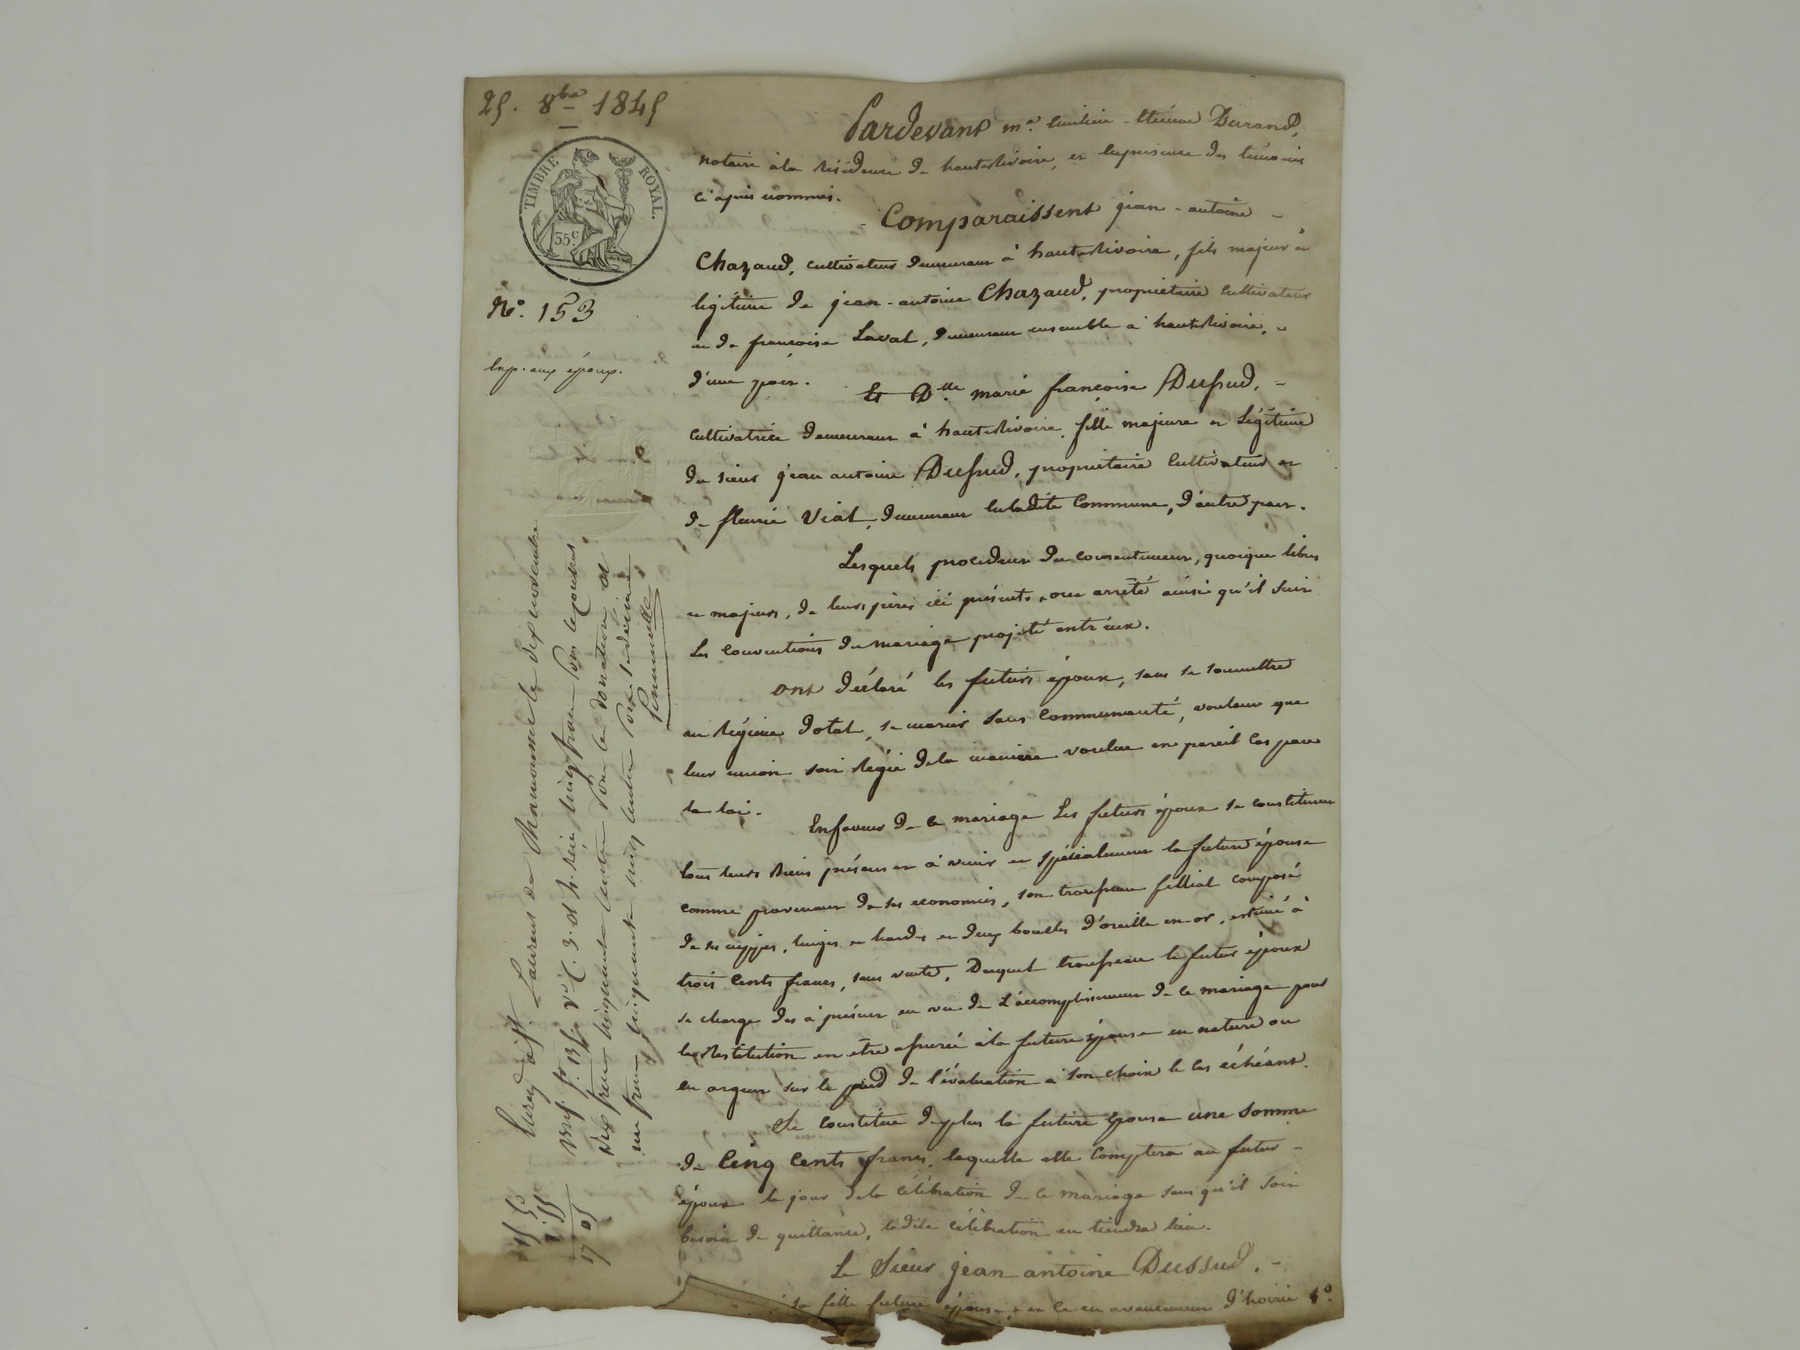 25. 8bre 1845
TIMBRE ROYAL.
35c
N°. 153
Exp. aux époux.
Pardevant me. Etienne Durand,
notaire à la résidence de hauterivoire, en la présence des témoins
ci après nommés.
Comparaissent jean-antoine
Chazaud, cultivateur demeurant à hauterivoire, fils majeur et
légitime de jean-antoine Chazaud, propriétaire cultivateur
et de françoise Laval, demeurant ensemble à hauterivoire,
d'une part.
Et Dlle marie françoise Dussud,
cultivatrice demeurant à hauterivoire, fille majeure et légitime
du sieur jean antoine Dussud, propriétaire cultivateur et
de fleurie Vial, demeurant en ladite Commune, d'autre part.
Lesquels procédant du consentement, quoique libres
et majeurs, de leurs pères ici présents, ont arrêté ainsi qu'il suit
les conventions du mariage projeté entr'eux.
Ont déclaré les futurs époux, sans se soumettre
au régime dotal, se marier sans communauté, voulant que
leur union soit régie de la manière voulue en pareil cas par
la loi.
En faveur de ce mariage Les futurs époux se constituent
tous leurs biens présens et à venir et spécialement la future épouse
comme provenant de ses économies, son trousseau fillial composé
de ses nippes, linges et hardes et deux boucles d'oreille en or, estimé à
trois Cents francs, sans vente, Duquel trousseau le futur époux
se charge dès à présent en vue de l'accomplissement de ce mariage pour
la restitution en être assurée à la future épouse en nature ou
en argent sur le pied de l'évaluation à son choix le cas échéant.
Se constitue de plus la future épouse une somme
de Cinq Cents francs, laquelle elle Comptera au futur
époux le jour de la célébration de ce mariage sans qu'il soit
besoin de quittance, ladite célébration en tiendra lieu.
Le Sieur jean antoine Dussud,
sa fille future épouse, et ce en avancement d'hoirie 1°.
Enreg. à St. Laurent de Chamousset le dix novembre
1845. f° 13 Vo C. 3. et s. reçu cinq francs pour les époux
dix francs cinquante centimes pour la donation et
un franc cinquante cinq centimes pour décime
15 50
1 55
17 05